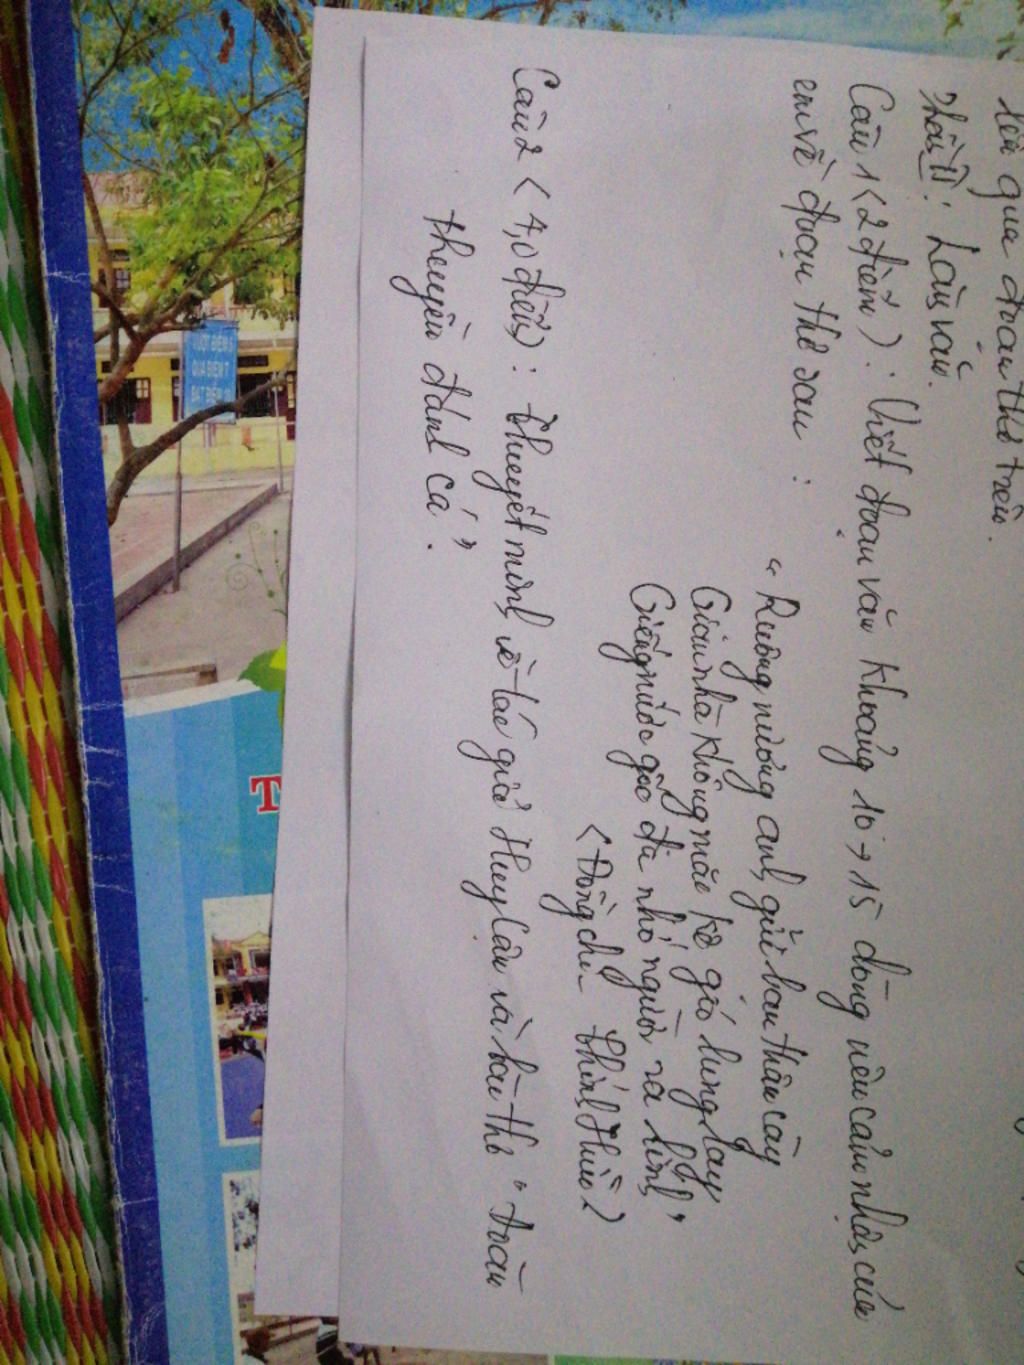 trên qua đoạn thơ trên.
Phần II: Làm văn.
Câu 1 (2 điểm): Viết đoạn văn khoảng 10 → 15 dòng nêu cảm nhận của
em về đoạn thơ sau:
"Ruộng nương anh gửi bạn thân cày
Gian nhà không mặc kệ gió lung lay
Giếng nước gốc đa nhớ người ra lính"
(Đồng chí - Chính Hữu)
Câu 2 (4,0 điểm): Thuyết minh về tác giả Huy Cận và bài thơ "Đoàn
thuyền đánh cá".
VƯỢT ĐIỂM 5
QUA ĐIỂM 7
ĐẠT ĐIỂM
T